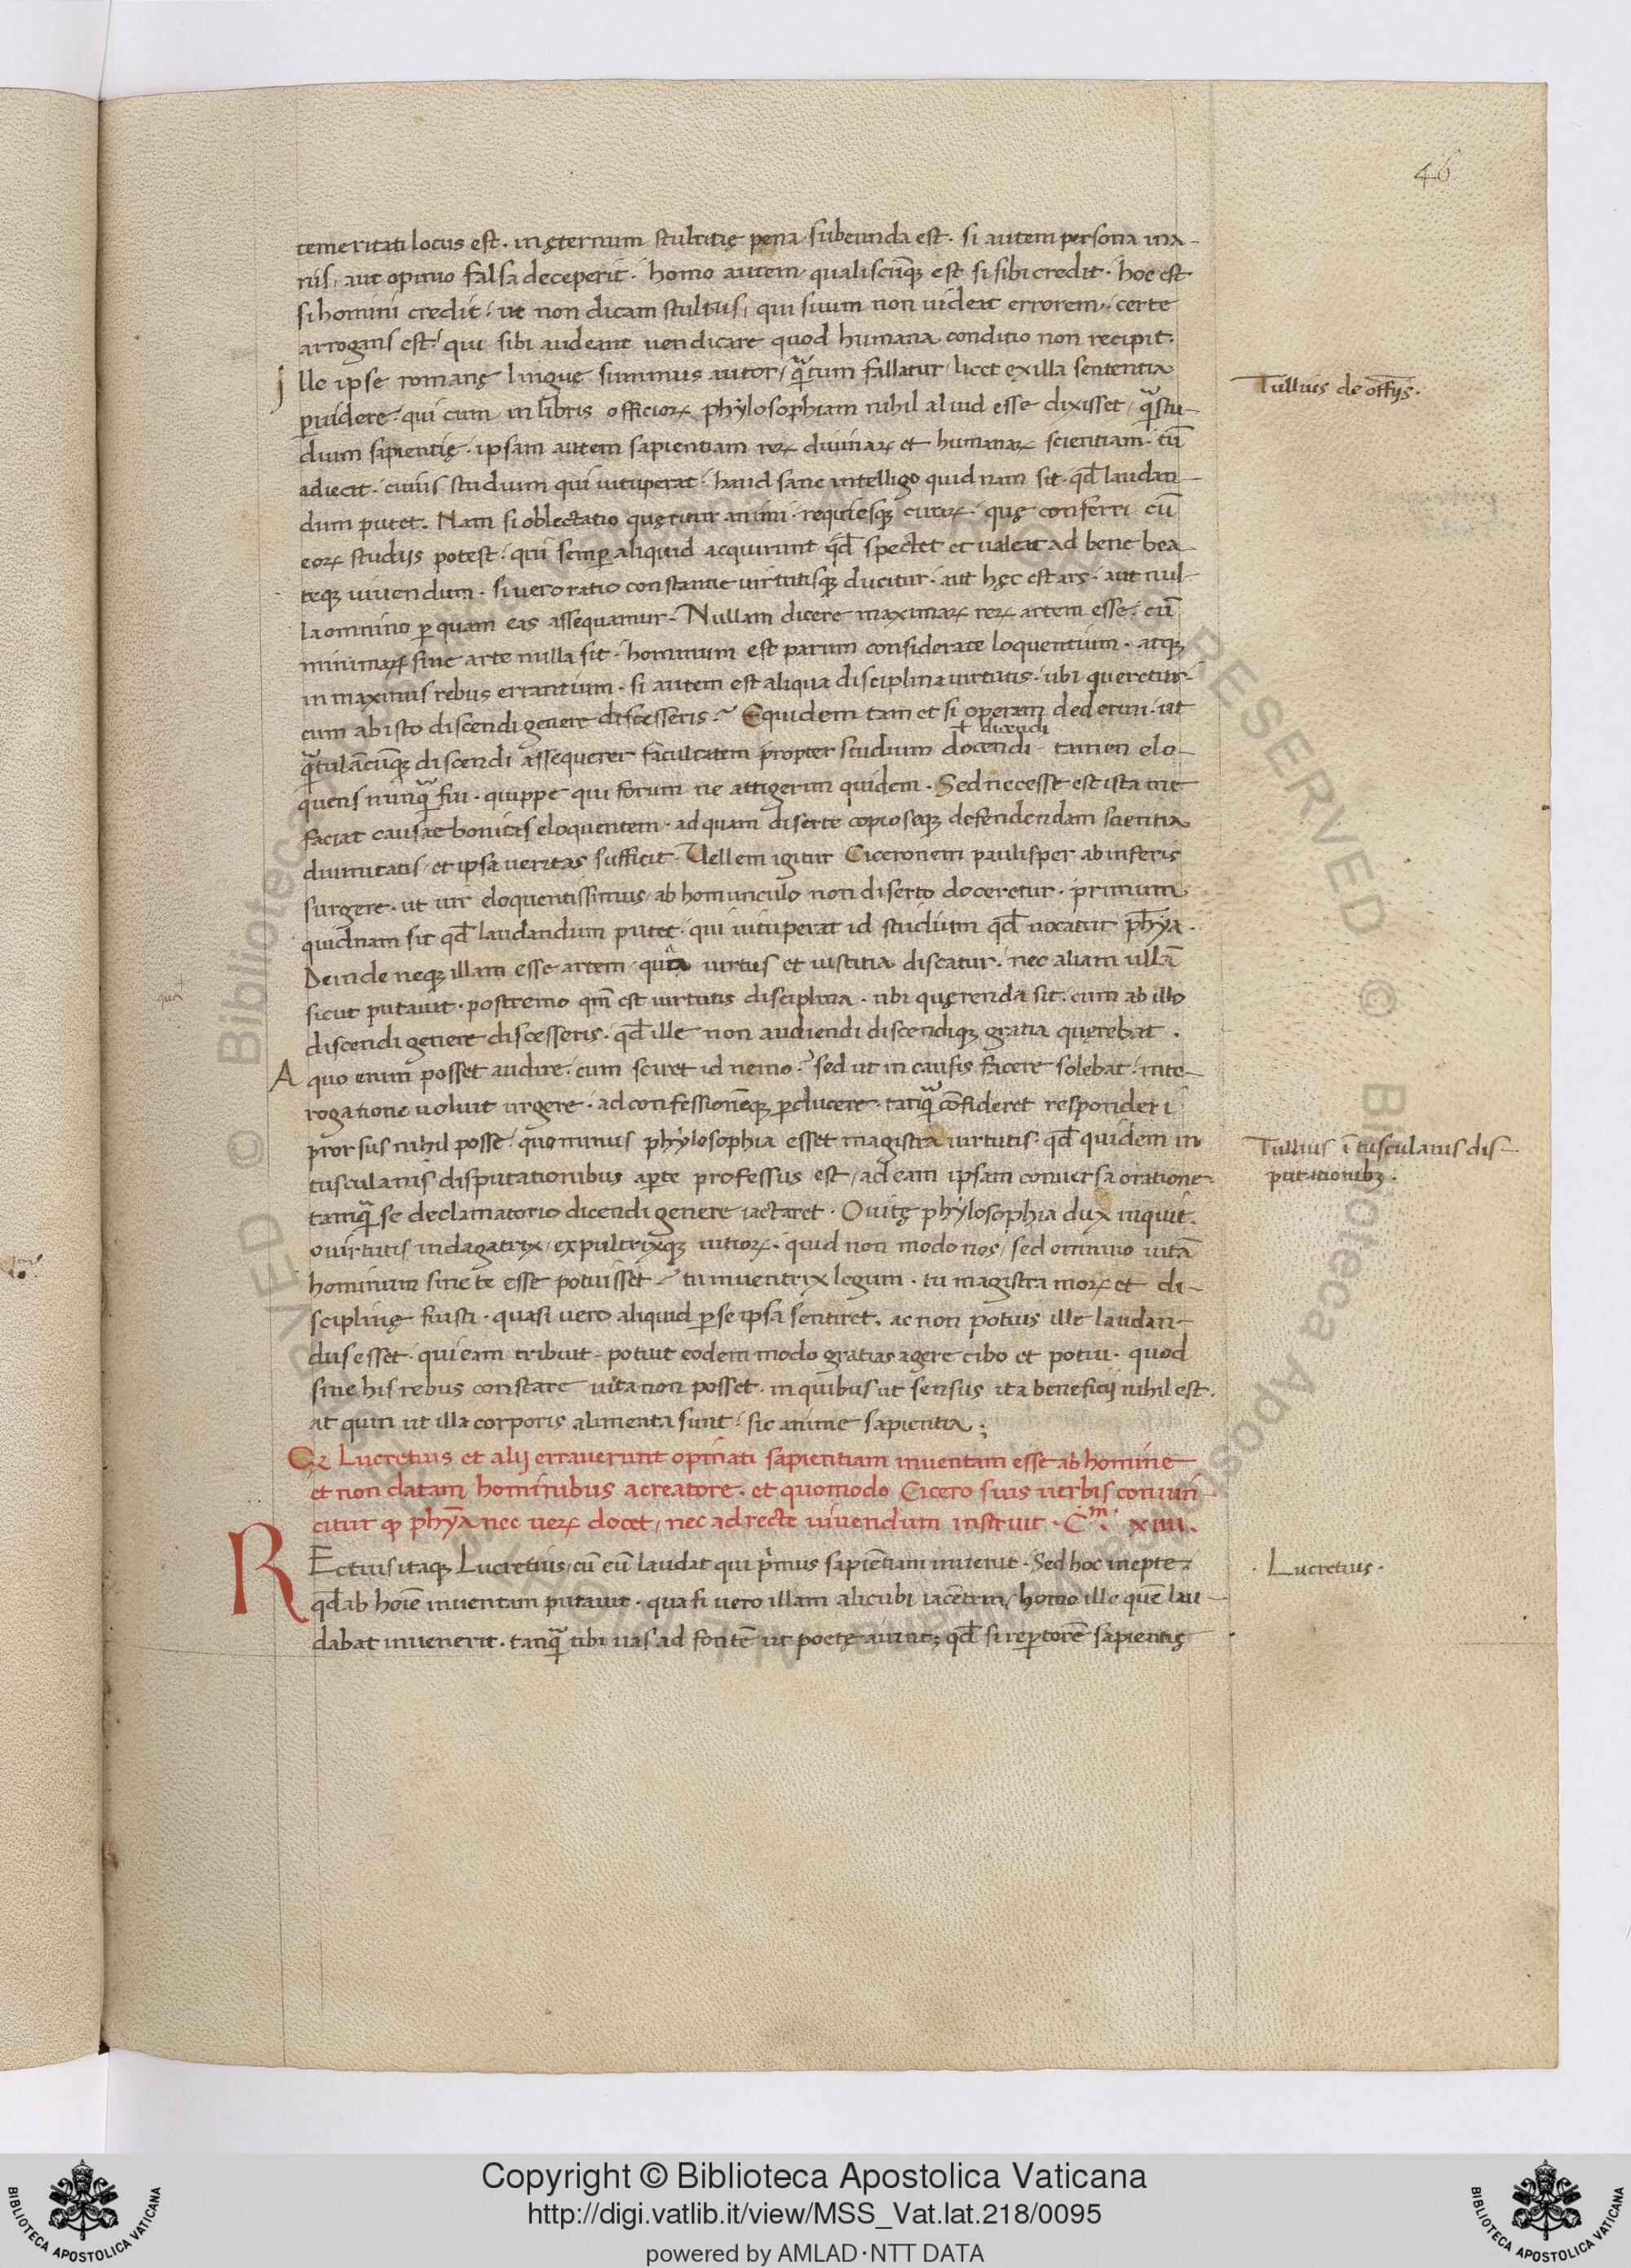 46
temeritati locus est. in ęternum stultitię pena subeunda est. si autem persona ina-
nis, aut opinio falsa deceperit. homo autem qualiscūq; est si sibi credit. hoc est
si homini credit: ut non dicam stultus, qui suum non uideat errorem: certe
arrogans est: qui sibi audeant uendicare quod humana conditio non recipit.
Ille ipse romanę linguę summus autor, q̃tum fallatur, licet ex illa sententia
ꝑuidere. qui cum in libris officioꝝ phylosophiam nihil aliud esse dixisset, q̃ stu-
dium sapientię. ipsam autem sapientiam reꝝ diuinaꝝ et humanaꝝ scientiam. tū
adiecit. cuius studium qui uituperat: haud sane intelligo quid nam sit. qd̄ laudan-
dum putet. Nam si oblectatio quęritur animi. requiesq; curaꝝ. quę conferri cū
eoꝝ studijs potest: qui semꝑ aliquid acquirunt qd̄ spectet et ualeat ad bene bea-
teq; uiuendum. si uero ratio constantie uirtutisq; ducitur. aut hęc est ars. aut nul-
la omnino ꝑ quam eas assequamur. Nullam dicere maximaꝝ reꝝ artem esse: cū
minimaꝝ sine arte nulla sit. hominum est parum considerate loquentium. atq;
in maximis rebus errantium. si autem est aliqua disciplina uirtutis. ubi queretur
cum ab isto discendi genere discesseris? Equidem tam et si operam dederim. ut
dicendi
q̃tulācūq; discendi assequerer facultatem propter studium docendi. tamen elo-
quens nunq̃ fui. quippe qui forum ne attigerim quidem. Sed necesse est ista me
faciat causae bonitas eloquentem. ad quam diserte copioseq; defendendam scientia
diuinitatis, et ipsa ueritas sufficit. Uellem igitur Ciceronem paulisper ab inferis
surgere. ut uir eloquentissimus, ab homunculo non diserto doceretur. primum
quidnam sit qd̄ laudandum putet. qui uituperat id studium qd̄ uocatur phȳa.
Deinde neq; illam esse artem. qua uirtus et iustitia discatur. nec aliam ullā
sicut putauit. postremo qm̄ est uirtutis disciplina. ubi quęrenda sit. cum ab illo
discendi genere discesseris. qd̄ ille non audiendi discendiq; gratia querebat.
A quo enim posset audire. cum sciret id nemo? sed ut in causis facere solebat: inte-
rogatione uoluit urgere. ad confessionēq; ꝑducere. tanq̃ cōfideret responderi
prorsus nihil posse: quominus phylosophia esset magistra uirtutis. qd̄ quidem in
tusculanis disputationibus aꝑte professus est, ad eam ipsam conuersa oratione.
tamq̃ se declamatorio dicendi genere iactaret. O uitę phylosophia dux inquit.
o uirtutis indagatrix, expultrixq; uitioꝝ. quid non modo nos, sed omnino uitā
hominum sine te esse potuisset? tu inuentrix legum. tu magistra moꝝ et di-
sciplinę fuisti. quasi uero aliquid ꝑ se ipsa sentiret. ac non potius ille laudan-
dus esset. qui eam tribuit. potuit eodem modo gratias agere cibo et potui. quod
sine his rebus constare uita non posset. in quibus ut sensus ita beneficij nihil est.
at quin ut illa corporis alimenta sunt: sic anime sapientia;
Lucretius et alij errauerunt opinati sapientiam inuentam esse ab homine
et non datam hominibus a creatore. et quomodo Cicero suis uerbis conuin-
citur ꝙ phȳa nec ueꝝ docet, nec ad recte uiuendum instruit. Cm. xiiii.
REctius itaq; Lucretius, cū eū laudat qui pͥmus sapiētiam inuenit. Sed hoc inepte:
qd̄ ab hoīe inuentam putauit. quasi uero illam alicubi iacētem, homo ille quē lau-
dabat inuenerit. tanq̃ tibi uas ad fontē ut poetę aiunt; qd̄ si reꝑtorē sapientię
Tullius de offijs.
Tullius ī tusculanis dis-
putationibꝫ.
Lucretius.
Copyright © Biblioteca Apostolica Vaticana
http://digi.vatlib.it/view/MSS_Vat.lat.218/0095
powered by AMLAD·NTT DATA
BIBLIOTECA APOSTOLICA VATICANA
BIBLIOTECA APOSTOLICA VATICANA